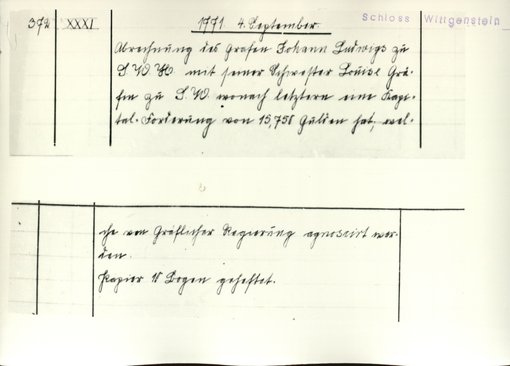 372 XXXI 1771. 4. September. Schloss Wittgenstein
Abrechnung des Grafen Johann Ludwigs zu
S. W. H. mit seiner Schwester Louise Grä-
fin zu S. W. wonach letztern eine Kapi-
tal-Forderung von 15,750 Gulden hat, wel-
che von Gräflicher Regierung agnoscirt wor-
den.
Papier Bogen geheftet.